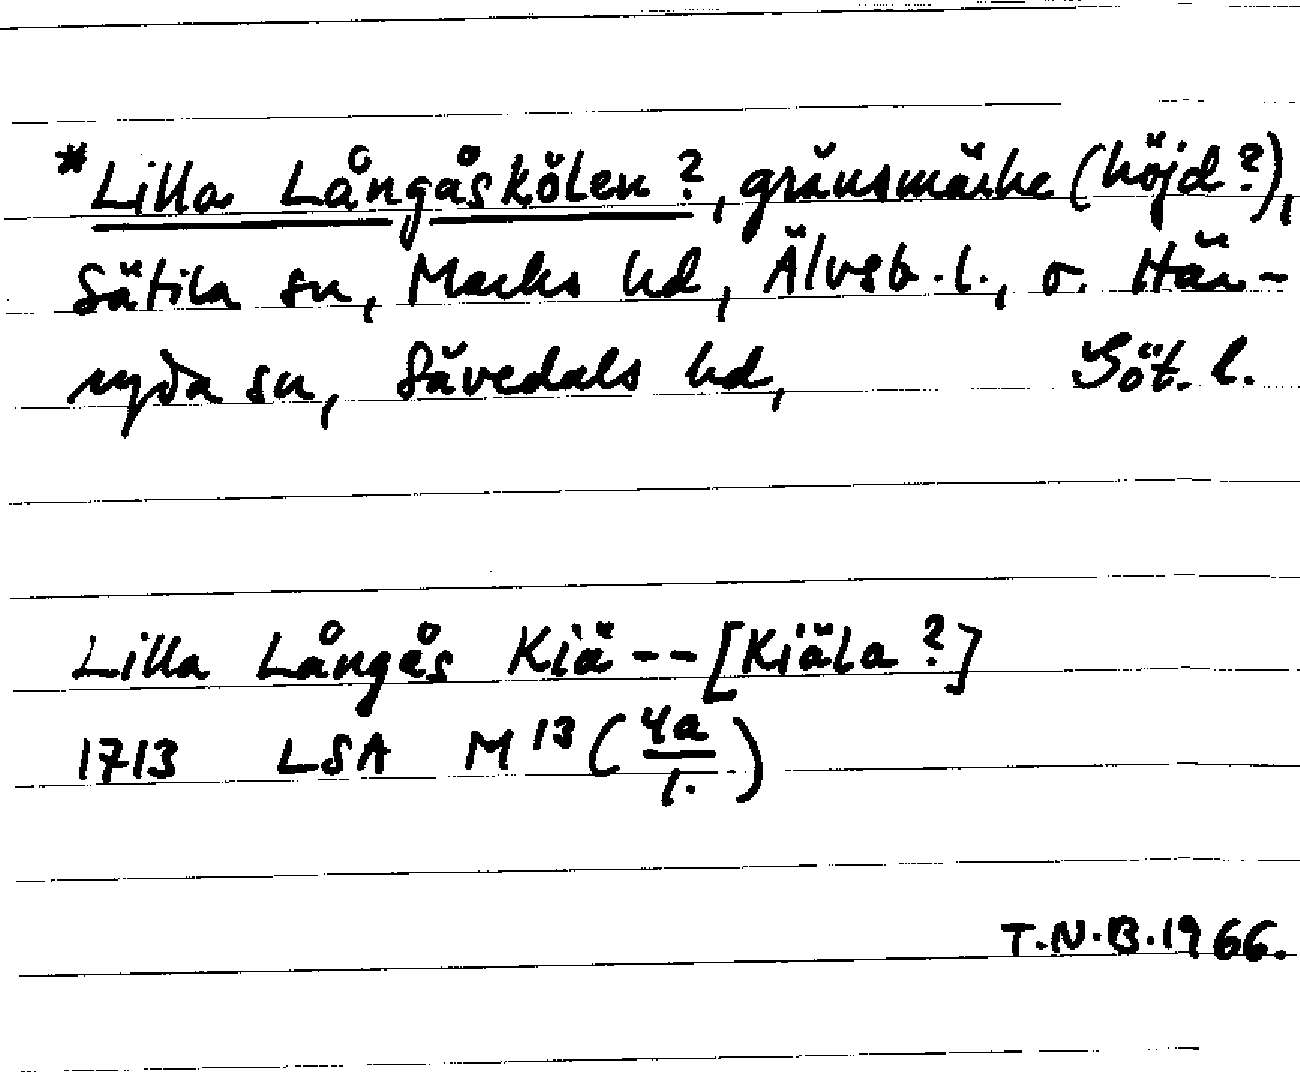 *Lilla Långåskölen?, gränsmärke (höjd?),
Sätila sn, Marks hd, Älvsb. l., o. Här-
ryda sn, Sävedals hd, Göt. l.
Lilla Långås Kiä-- [Kiäla?]
1713 LSA M 13 (4a/1.)
T.N.B. 1966.